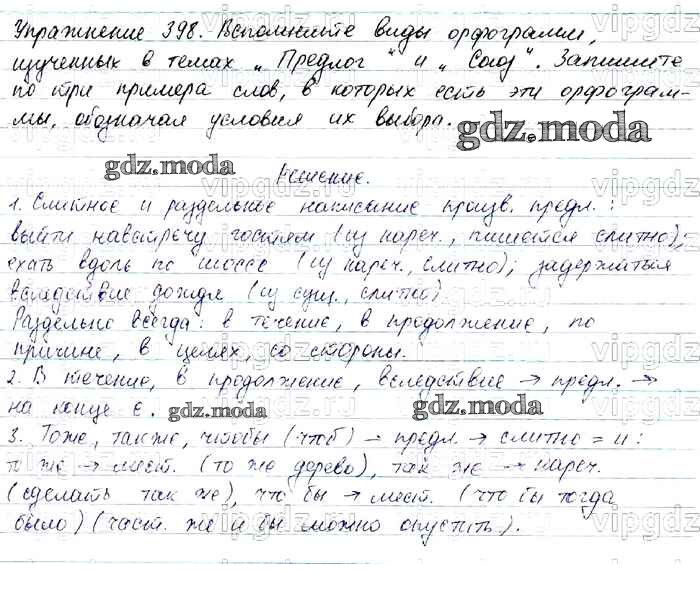 Упражнение 398. Вспомните виды орфограмм,
изученных в темах „Предлог" и „Союз". Запишите
по три примера слов, в которых есть эти орфограм-
мы, обозначая условия их выбора.
gdz.moda
gdz.moda
Решение.
1. Слитное и раздельное написание произв. предл.:
выйти навстречу гостям (из нареч., пишется слитно),
ехать вдоль по шоссе (из нареч., слитно), задержаться
вследствие дождя (из сущ., слитно).
Раздельно всегда: в течение, в продолжение, по
причине, в целях, со стороны.
2. В течение, в продолжение, вследствие → предл. →
на конце е.
gdz.moda
gdz.moda
3. Тоже, также, чтобы (чтоб) → предл. → слитно = и:
то же → мест. (то же дерево), так же → нареч.
(сделать так же), что бы → мест. (что бы тогда
было) (част. же и бы можно опустить).